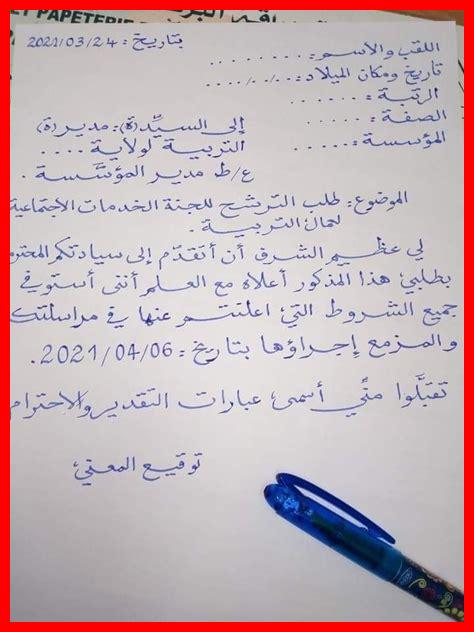 ET PAPETERIE
بتاريخ: 2021/03/24
اللقب والاسم: ........
تاريخ ومكان الميلاد: ../../....
الرتبة: ......
الصفة: ......
المؤسسة: ......
إلى السيّد(ة): مدير(ة)
التربية لولاية ....
ع/ط مدير المؤسّسة.
الموضوع: طلب الترشح للجنة الخدمات الاجتماعية
لعمال التربية.
لي عظيم الشرف أن أتقدّم إلى سيادتكم المحترمة
بطلبي هذا المذكور أعلاه مع العلم أنني أستوفي
جميع الشروط التي أعلنتم عنها في مراسلتكم
والمزمع إجراؤها بتاريخ: 2021/04/06.
تقبّلوا منّي أسمى عبارات التقدير والاحترام
توقيع المعني